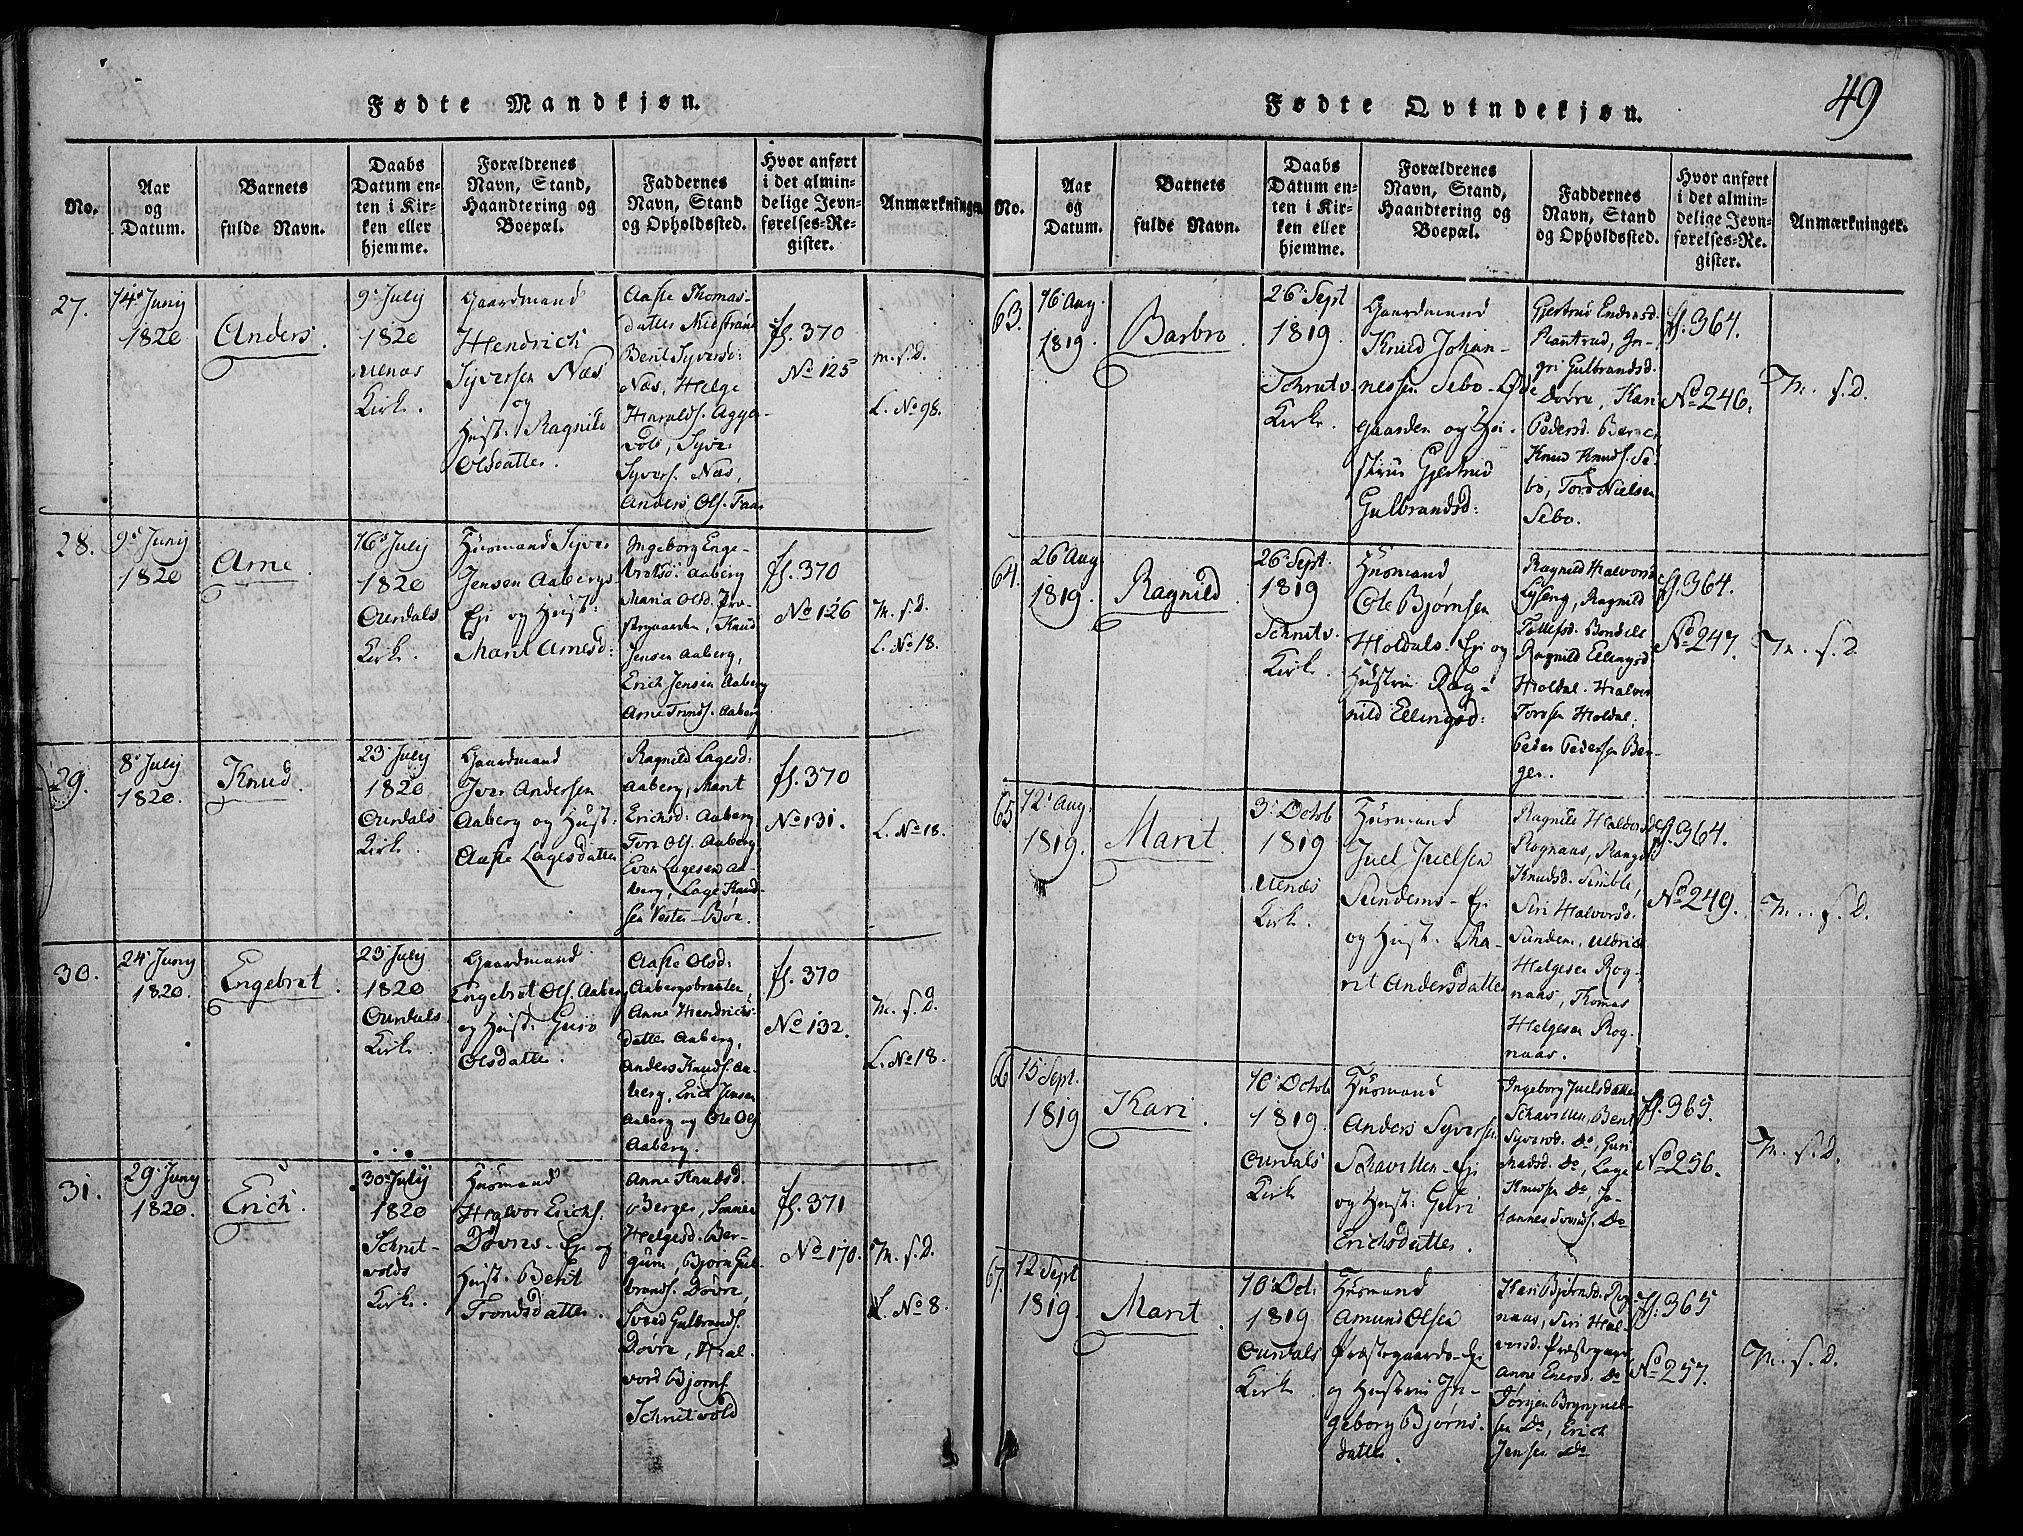 Fødte Mandkjøn.
No.
Aar
og
Datum.
Barnets
fulde Navn.
Daabs
Datum en-
ten i Kir-
ken eller
hjemme.
Forældrenes
Navn, Stand,
Haandtering og
Boepæl.
Faddernes
Navn, Stand
og Opholdssted.
Hvor anført
i det almin-
delige Jevn-
førelses-Re-
gister.
Anmærkninger.
27.
14de Junij
1820
Anders.
9de Julij
1820
Ulnæs
Kirke.
Gaardmand
Hendrich
Syversen Næs
og
Hust: Ragnild
Olsdatter.
Aaste Thomas-
datter Midstrand
Berit Syversd:
Næs, Helge
Haralds. Agge-
vold, Syver
Syvers. Næs,
Anders Ols. Fraas
fl. 370
No 125
M. f. D.
L. No 98.
28.
9de Junij
1820
Arne.
16de Julij
1820
Ourdals
Kirke.
Huusmand Syver
Jensen Aabergs
Eje og Hust:
Marit Arnesd:
Ingeborg Enge-
bretsd: Aaberg
Maria Olsd. Præ-
stegaarden, Knud
Jensen Aaberg,
Erich Jensen Aaberg
Arne Tronds. Aaberg
fl. 370
No 126
M. f. D.
L. No 18.
29.
8de Julij
1820.
Knud.
23de Julij
1820
Ourdals
Kirke.
Gaardmand
Iver Andersen
Aaberg og Hust:
Aaste Lagesdatter
Ragnild Lagesd:
Aaberg, Marit
Erichsd: Aaberg
Tore Ols. Aaberg
Even Lagesen Aa-
berg, Lage Knud-
sen Vester-Bøe.
fl. 370
No 131.
L. No 18.
30.
24de Junij
1820.
Engebret.
23de Julij
1820
Ourdals
Kirke.
Gaardmand
Engebret Ols. Aaberg
og Hust: Guro
Olsdatter.
Aaste Olsd:
Aabergsbraaten,
Anne Hendrichs-
datter Aaberg,
Anders Knuds. Aa-
berg, Erich Jensen
Aaberg og Ole Ols
Aaberg.
fl. 370
No 132.
M. f. D.
L. No 18.
31.
29de Junij
1820.
Erich.
30de Julij
1820
Schrut-
volds
Kirke.
Huusmand
Halvor Erichs.
Døvres-Eje og
Hust. Berit
Trondsdatter.
Anne Knudsd.
Berger, Sønnev
Helgesd. Ber-
gum, Bjørn Gul-
brands. Døvre,
Svend Gulbrands.
Døvre, Hal-
vord Bjørns
Schrutvold
fl. 371
No 170.
M. f. D.
L. No 8.
Fødte Qvindekjøn.
49
No.
Aar
og
Datum.
Barnets
fulde Navn.
Daabs
Datum en-
ten i Kir-
ken eller
hjemme.
Forældrenes
Navn, Stand,
Haandtering og
Boepæl.
Faddernes
Navn, Stand
og Opholdssted.
Hvor anført
i det almin-
delige Jevn-
førelses-Re-
gister.
Anmærkninger.
63.
16de Aug.
1819.
Barbro.
26de Sept
1819.
Schrutv.
Kirke.
Gaardmand
Knud Johan-
nessen Sebo-Øde
gaarden og Hu-
strue Gjertrud
Gulbrandsd:
Gjertrud Endresd.
Plantrud, In-
gri Gulbrandsd.
Døvre, Kari
Pedersd. Berger
Knud Knuds. Se-
bo, Tord Nielsen
Sebo.
fl. 364.
No 246.
M. f. D.
64.
26de Aug
1819.
Ragnild.
26de Sept.
1819
Schrutv.
Kirke.
Huusmand
Ole Bjørnsen
Holdals-Eje og
Hustrue Rag-
nild Ellingsd:
Ragnild Halvorsd
Lyseng, Ragnild
Tollefsd. Bondelie
Ragnild Ellingsd
Holdal. Halvor
Toresen Holdal.
Peder Pedersen Ber-
ger.
fl. 364.
No 247.
M. f. D.
65.
12de Aug.
1819.
Marit.
3de Octob
1819
Ulnæs
Kirke.
Huusmand
Juel Juelsen
Sundems-Eje
og Hust. Ma-
rit Andersdatter
Ragnild Halvorsd.
Rognaas, Rangdi
Knudsd. Semble,
Siri Halvorsd.
Sundem, Uldrich
Helgesen Rog-
naas, Thomas
Helgesen Rog-
naas.
fl. 364.
No 249.
M. f. D.
66
15de Sept.
1819
Kari.
10de Octob
1819.
Ourdals
Kirke
Huusmand
Anders Syversen
Schavillen-Eje
og Hust: Guri
Erichsdatter.
Ingeborg Juelsdatter
Schavillen, Berit
Syversd. Do, Guri
Madsd. Do, Lage
Knudsen Do, Jo-
hannes Svends. Do
fl. 365.
No 256.
M. f. D.
67.
12de Sept
1819.
Marit.
10de Oct:
1819
Ourdals
Kirke.
Huusmand
Amund Olsen
Præstegaards-Eje
og Hustrue In-
geborg Bjørns-
datter.
Kari Bjørnsd. Rog-
naas, Siri Hal-
vorsd. Præstegaar,
Anne Enersd. Do
Jørgen Brynjuel-
sen Do, Erich
Jensen Do
fl. 365
No 257.
M. f. D.